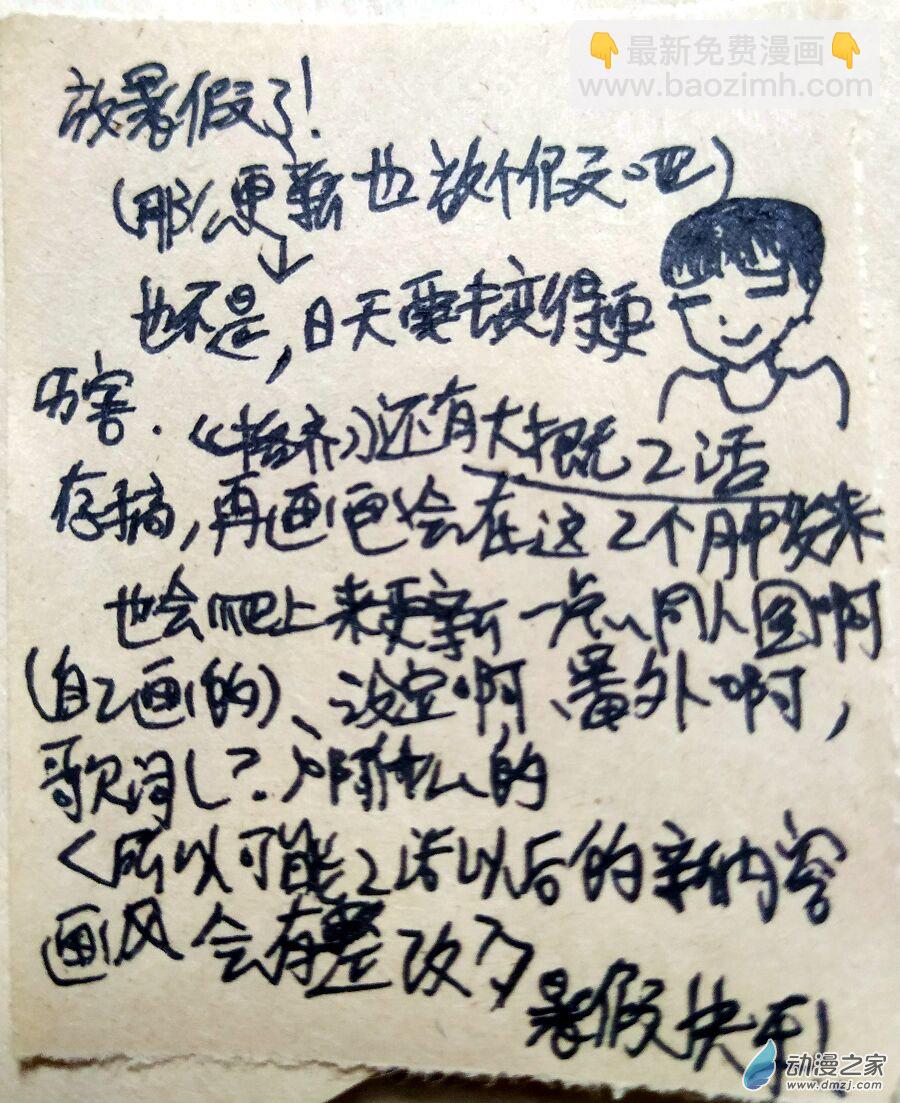 👇最新免费漫画👇
www.baozimh.com
放暑假了!
(那么更新也放个假吧)
也不是,日天要去变得更
厉害.《格斋》还有大概2话
存稿,再画也会在这2个月中发来
也会爬上来更新一点同人图啊
(自己画的)、设定啊、番外啊,
歌词(?)啊什么的
<所以可能2话以后的新内容
画风会有整改>
暑假快乐!
动漫之家
www.dmzj.com